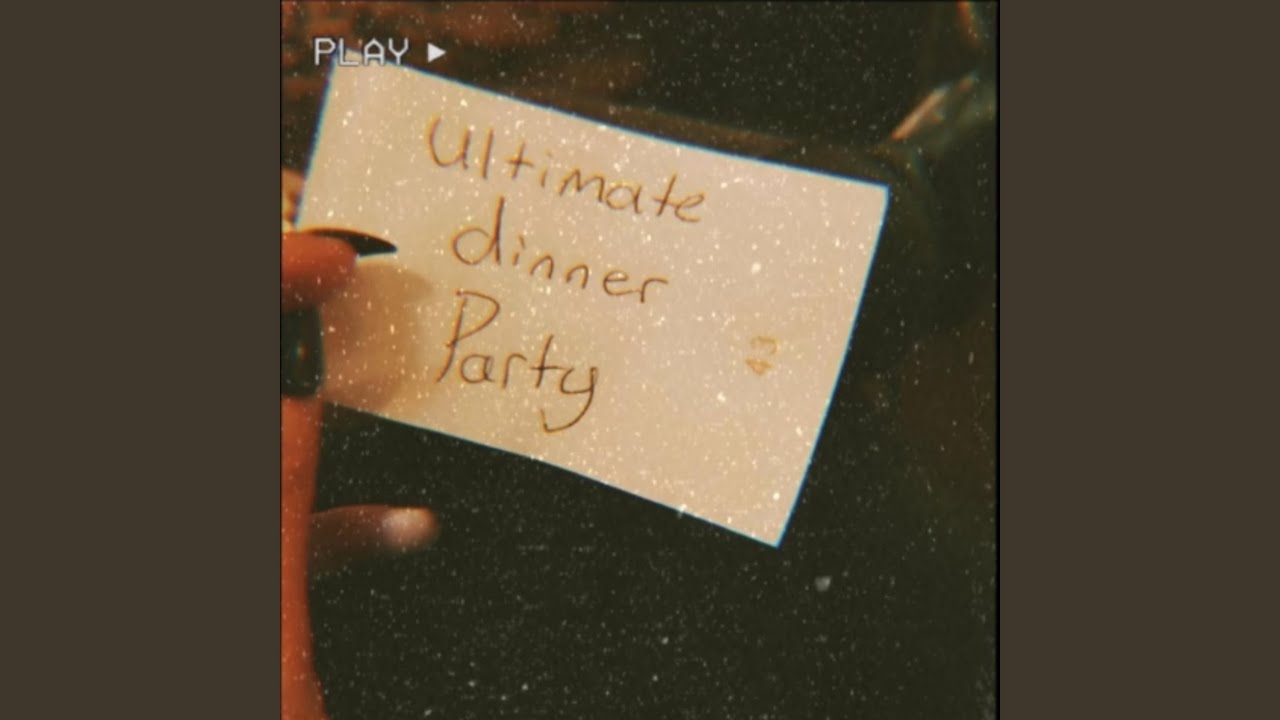 PLAY ►
Ultimate
dinner
Party